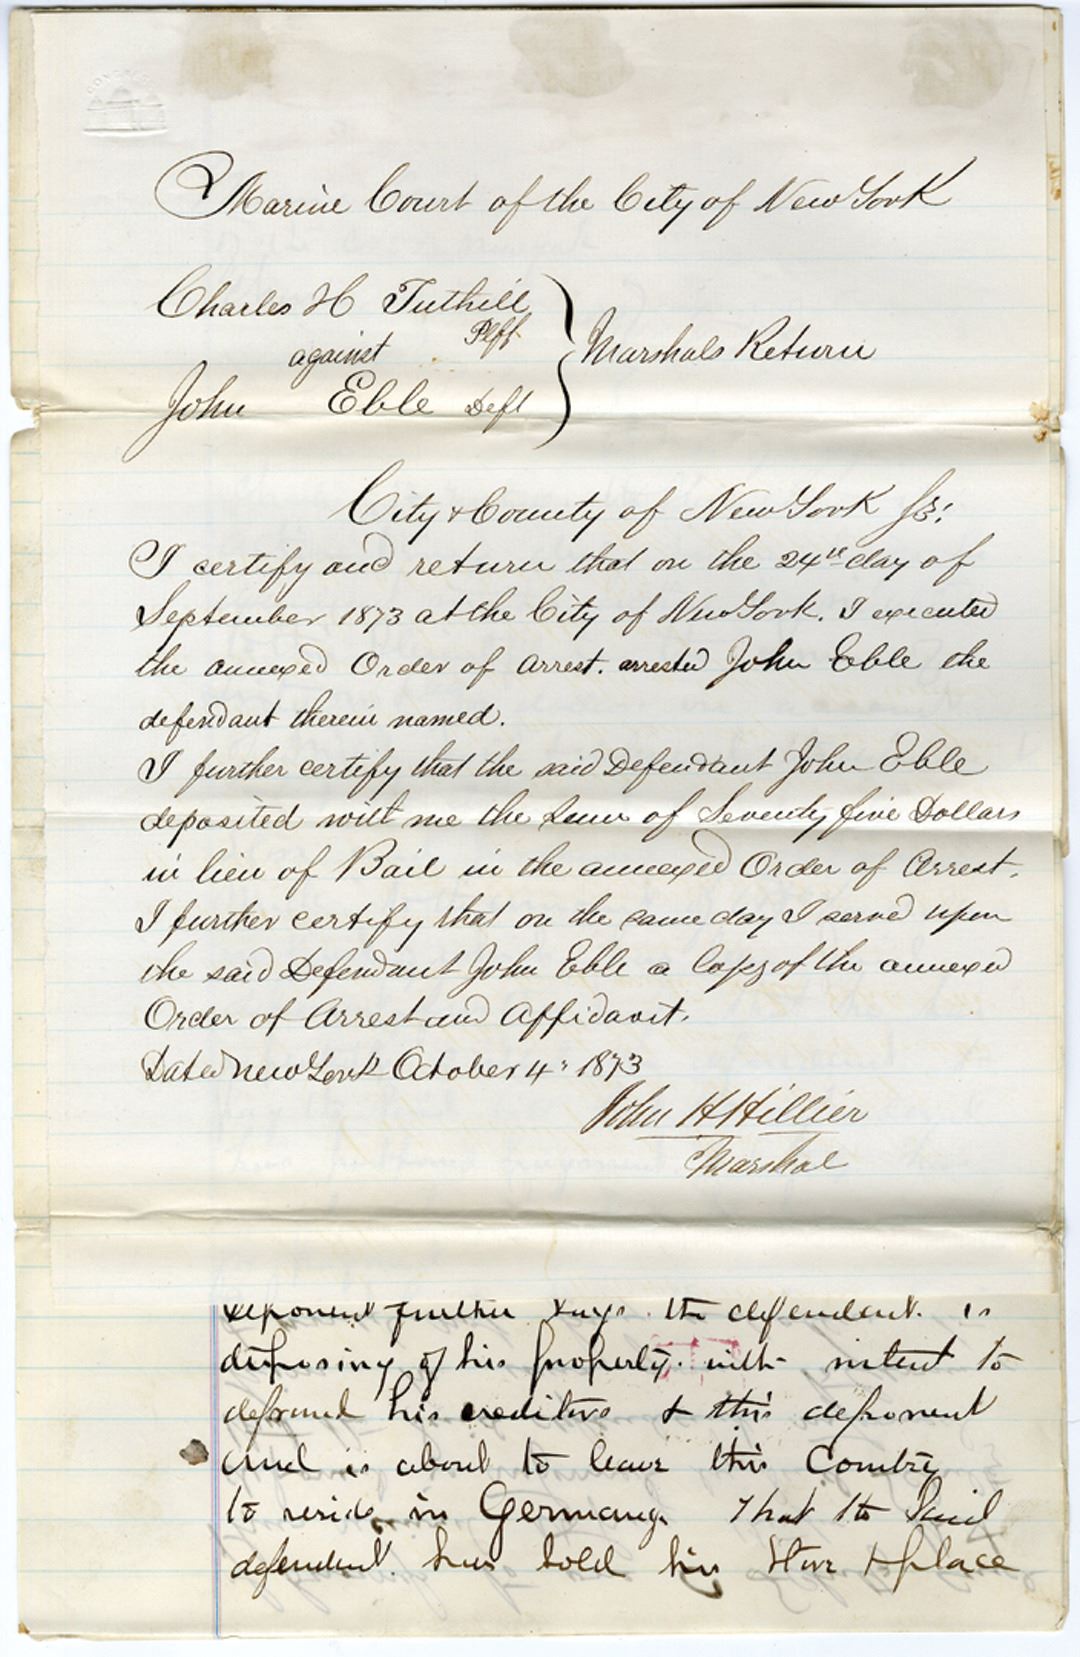 CONGRESS
Marine Court of the City of New York
Charles H Tuthill
Plff
against
Marshals Return
John Eble Deft
City & County of New York Ss:
I certify and return that on the 24th day of
September 1873 at the City of New York. I executed
the annexed Order of Arrest. arrested John Eble the
defendant therein named.
I further certify that the said Defendant John Eble
deposited with me the Sum of Seventy five Dollars
in lieu of Bail in the annexed Order of Arrest.
I further certify that on the same day I served upon
the said Defendant John Eble a Copy of the annexed
Order of Arrest and Affidavit.
Dated New York October 4, 1873
John H Hillier
Marshal
deponent further says the defendant is
disposing of his property with intent to
defraud his creditors & this deponent
and is about to leave this Country
to reside in Germany. That the Said
defendant has sold his Store & place